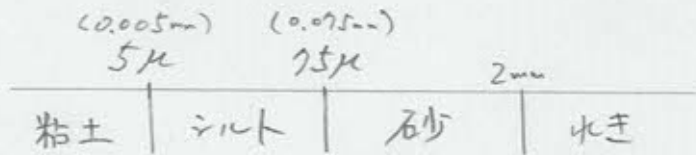 (0.005mm) (0.075mm)
5μ 75μ 2mm
粘土 シルト 砂 れき